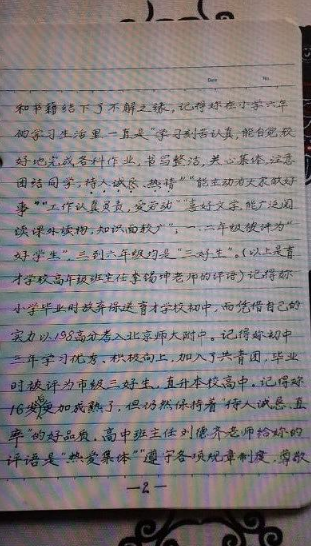 Date No.
和书籍结下了不解之缘，记得你在小学六年
的学习生活里一直是"学习刻苦认真，能自觉较
好地完成各科作业，书写整洁，关心集体，注意
团结同学，待人诚恳、热情""能主动为大家做好
事""工作认真负责，爱劳动""喜好文学，能广泛阅
读课外读物，知识面较广"，一、二年级被评为"
好学生"，三到六年级均是"三好生"。（以上是育
才学校高年级班主任李锡坤老师的评语）记得你
小学毕业时放弃保送育才学校初中，而凭借自己的
实力以198高分考入北京师大附中。记得你初中
三年学习优秀，积极向上，加入了共青团，毕业
时被评为市级三好生，直升本校高中。记得你
16岁更加成熟了，但仍然保持着"待人诚恳、直
率"的好品质，高中班主任刘德齐老师给你的
评语是"热爱集体""遵守各项规章制度，尊敬
—2—